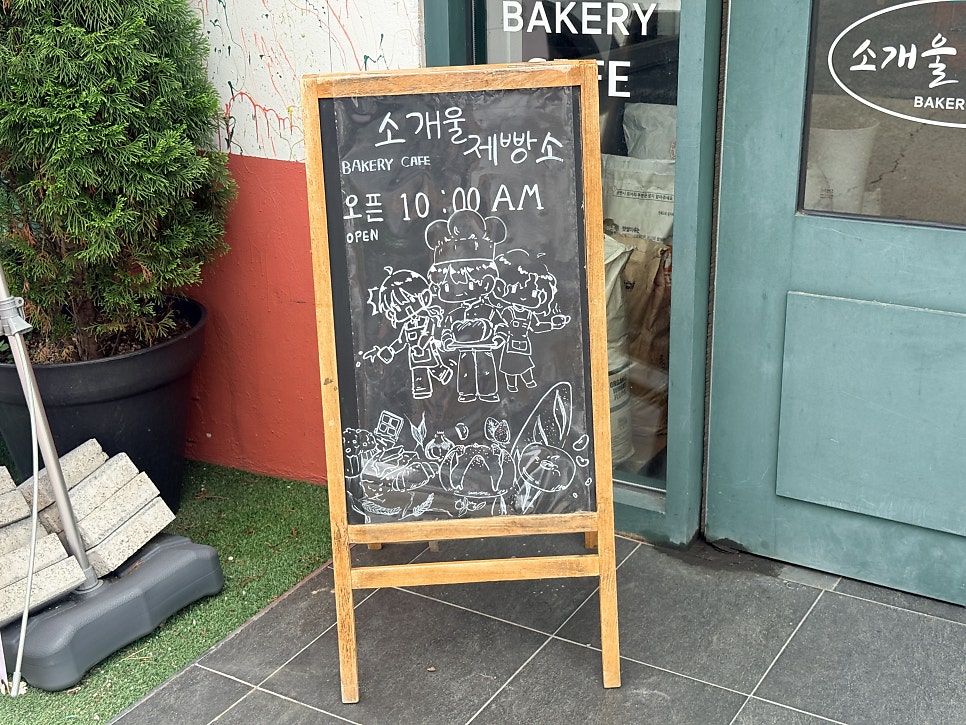 BAKERY
CAFE
소개울
BAKER
소개울
제빵소
BAKERY CAFE
오픈 10:00 AM
OPEN